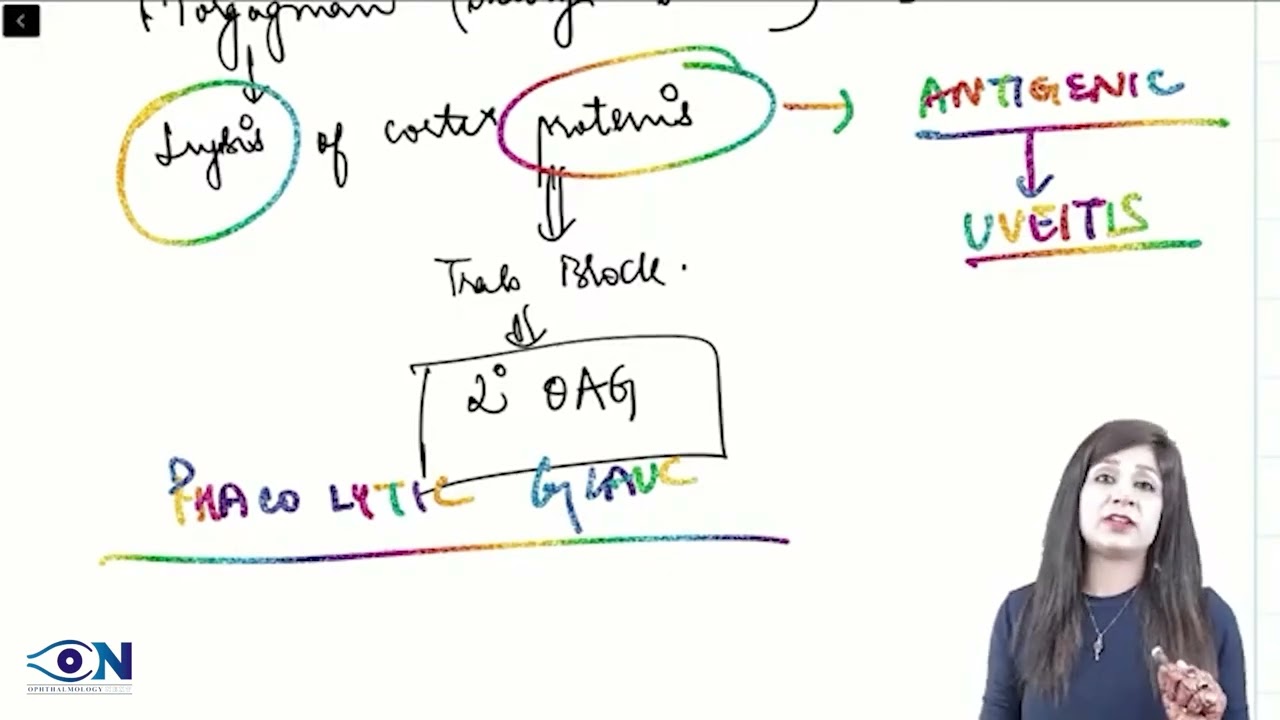 Lysis of cortex proteins → ANTIGENIC
UVEITIS
Trab Block.
2° OAG
PHACO LYTIC GLAUC
ON
OPHTHALMOLOGY